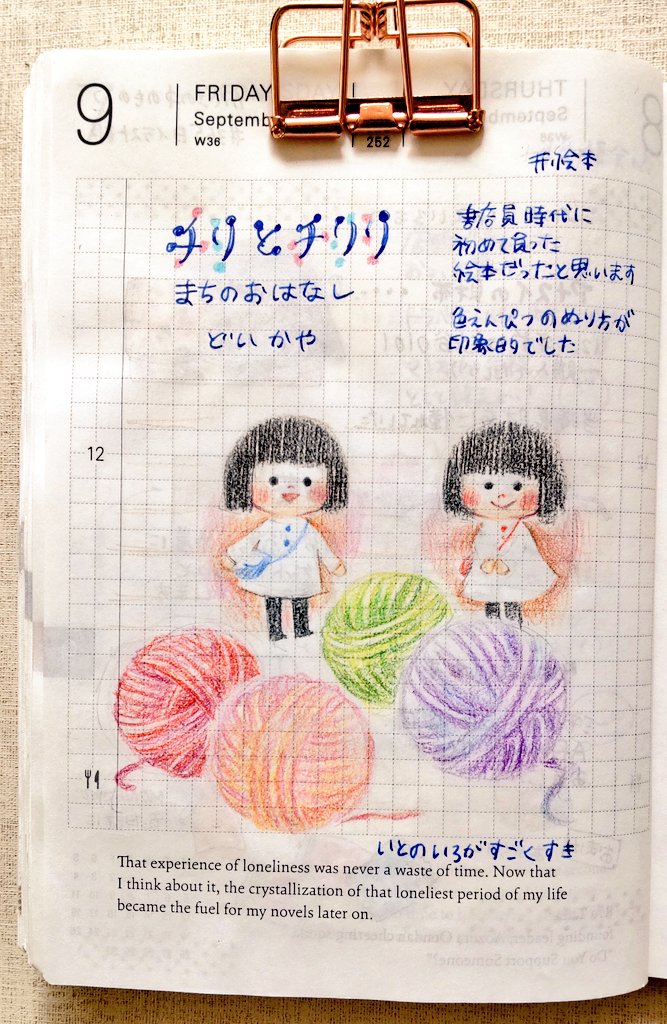 9
FRIDAY
Septemb
W36
252
#絵本
チリとチリリ
まちのおはなし
どい かや
書店員時代に
初めて買った
絵本だったと思います
色えんぴつのぬり方が
印象的でした
12
いとのいろがすごくすき
That experience of loneliness was never a waste of time. Now that
I think about it, the crystallization of that loneliest period of my life
became the fuel for my novels later on.